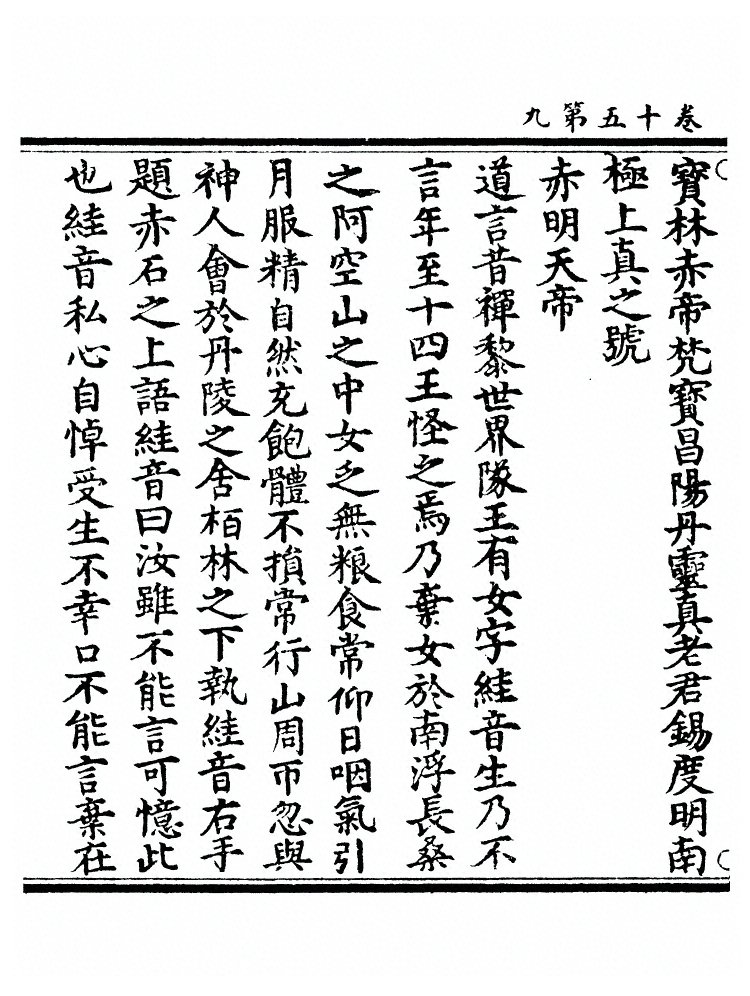 卷十五第九
寳林赤帝梵寳昌陽丹靈真老君錫度明南
極上真之號
赤明天帝
道言昔禪黎世界隊王有女字絓音生乃不
言年至十四王怪之焉乃棄女於南浮長桑
之阿空山之中女乏無粮食常仰日咽氣引
月服精自然充飽體不損常行山周帀忽與
神人會於丹陵之舍栢林之下執絓音右手
題赤石之上語絓音曰汝雖不能言可憶此
也絓音私心自悼受生不幸口不能言棄在